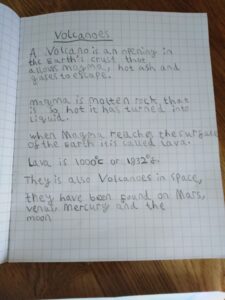 Volcanoes
A Volcano is an opening in
the Earth's crust that
allows magma, hot ash and
gases to escape.
magma is molten rock that
is so hot it has turned into
liquid.
when Magma reaches the surface
of the Earth it is called lava.
Lava is 1000°c or 1832°F.
They is also Volcanoes in space,
they have been found on Mars,
venus, Mercury and the
moon